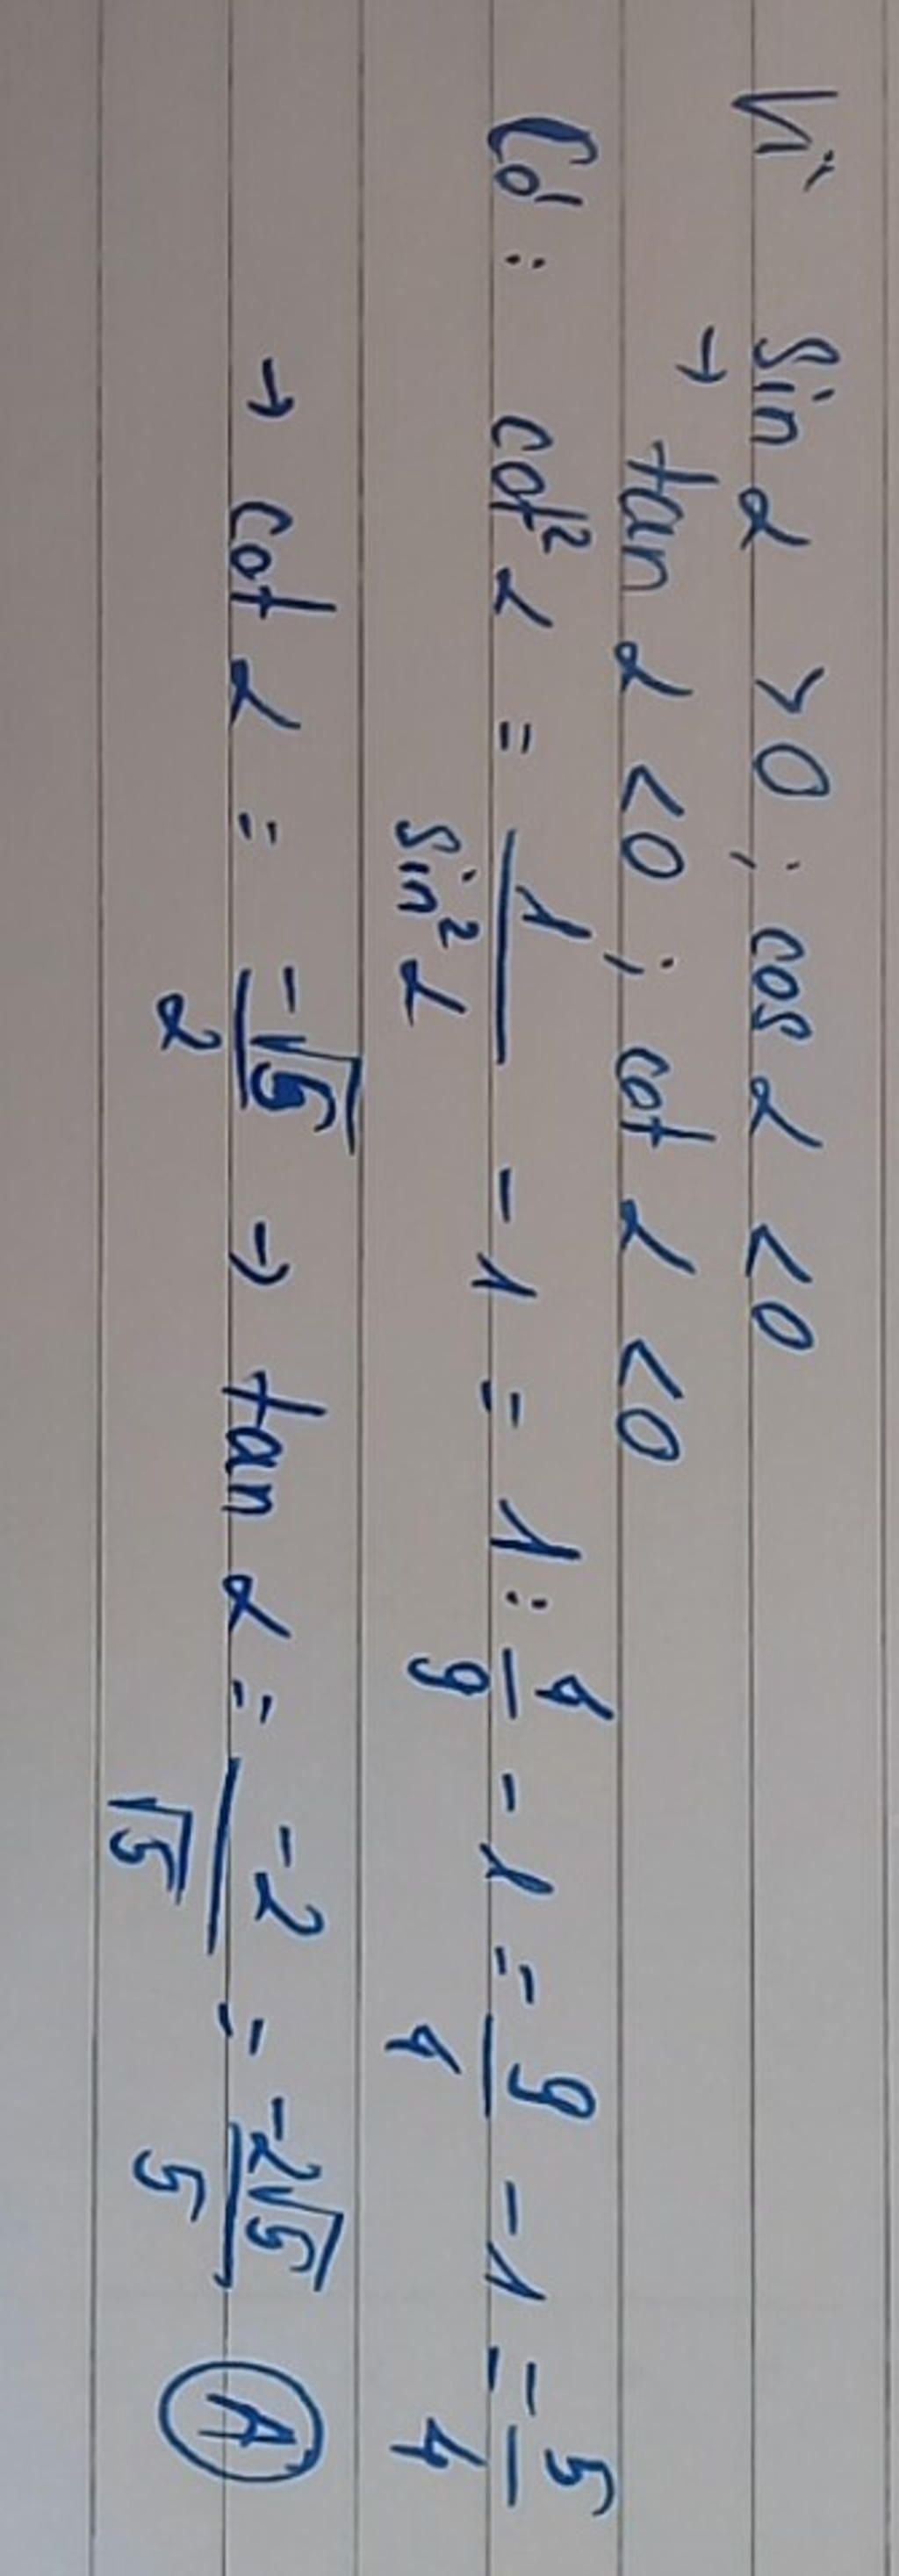 Vì sin α > 0 ; cos α < 0
→ tan α < 0 ; cot α < 0
Có : cot² α = 1/sin² α - 1 = 1 : 4/9 - 1 = 9/4 - 1 = 5/4
→ cot α = -√5/2 → tan α = -2/√5 = -2√5/5 A